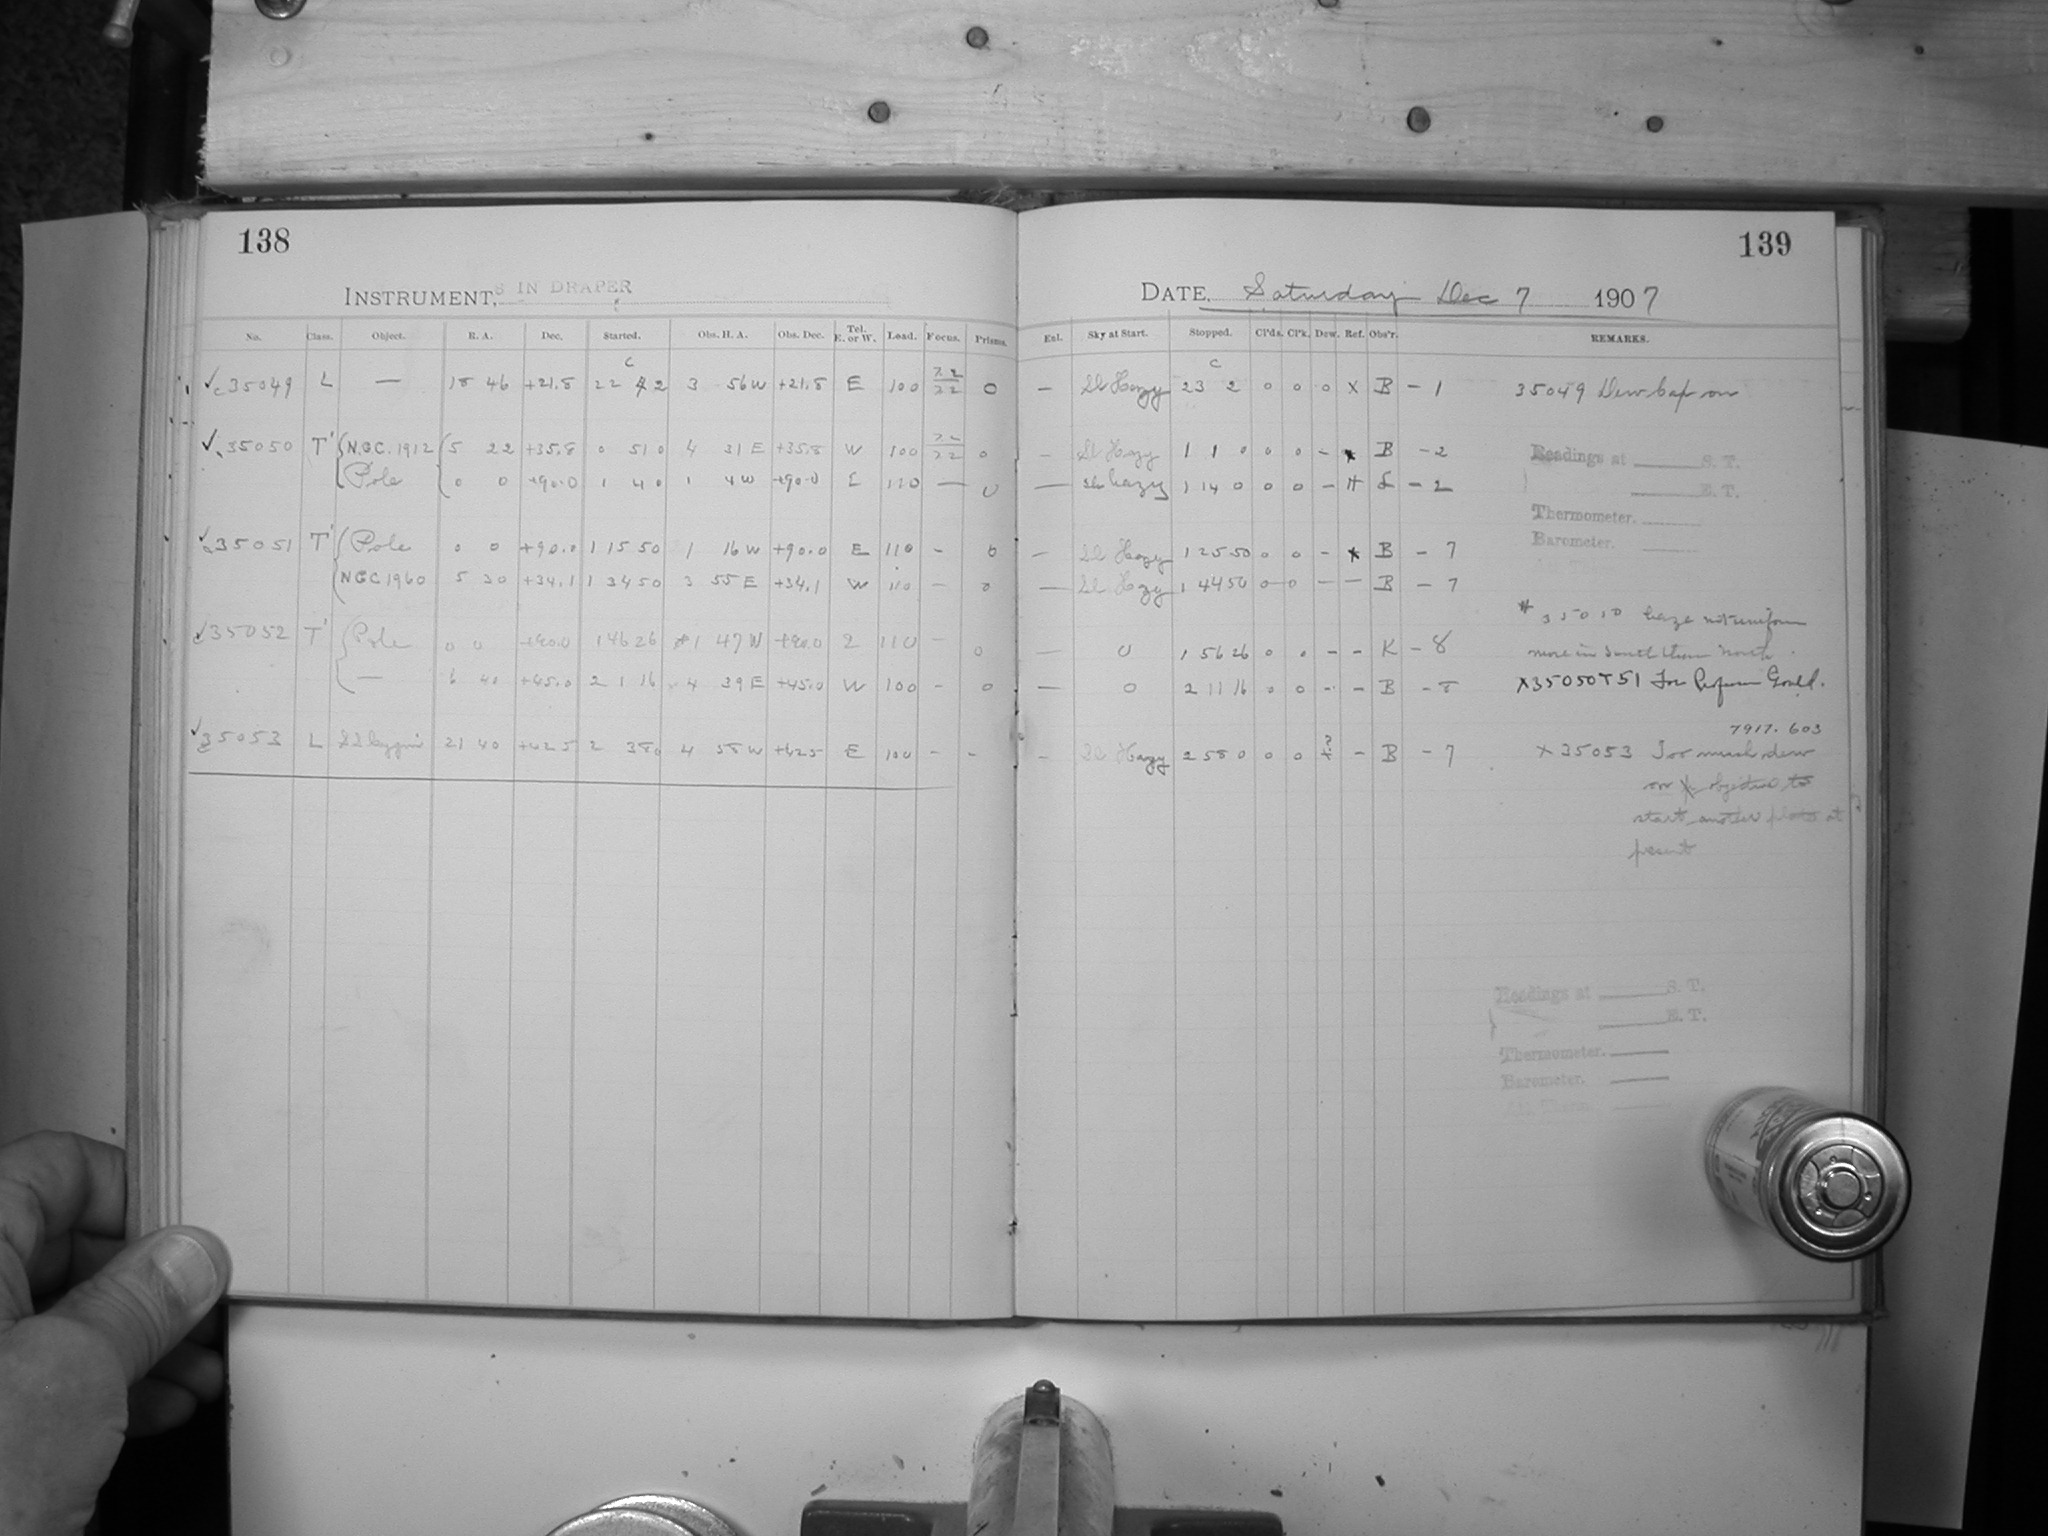 138
INSTRUMENT, 8 IN DRAPER
No. Class. Object. R. A. Dec. Started. Obs. H. A. Obs. Dec. Tel. E. or W. Load. Focus. Prisms.
C
✓c35049 L — 18 46 +21.8 22 2 3 56 W +21.8 E 100 0
✓35050 T' N.G.C. 1912 5 22 +35.8 0 51 0 4 31 E +35.8 W 100 0
Pole 0 0 +90.0 1 4 0 1 4 W +90.0 E 110 — 0
✓35051 T' Pole 0 0 +90.0 1 15 50 1 16 W +90.0 E 110 - 0
NGC 1960 5 30 +34.1 1 34 50 3 55 E +34.1 W 110 - 0
35052 T' Pole 0 0 +90.0 1 46 26 1 47 W +90.0 110 - 0
— 6 40 +45.0 2 1 16 4 39 E +45.0 W 100 - 0
✓35053 L SS Cygni 21 40 +42.5 2 38 0 4 58 W +42.5 E 100 - -
139
DATE, Saturday Dec 7 1907
Enl. Sky at Start. Stopped. Cl'ds. Cl'k. Dew. Ref. Obs'r. REMARKS.
C
— Sl Hazy 23 2 0 0 0 x B - 1 35049 Dew Cap on
- Sl Hazy 1 1 0 0 0 - x B - 2
— Sl hazy 1 14 0 0 0 - - 2
— Sl Hazy 1 25 50 0 0 - x B - 7
— Sl Hazy 1 44 50 0 0 — — B - 7
— 0 1 56 26 0 0 - - K - 8
— 0 2 11 16 0 0 - - B - 8
- Sl Hazy 2 58 0 0 0 ? x - B - 7
Readings at S. T.
E. T.
Thermometer.
Barometer.
35050 haze not uniform
more in South than North
x35050 + 51 For Professor Gould.
7917. 603
x 35053 Too much dew
on objective to
start another plate at
present
Readings at S. T.
E. T.
Thermometer.
Barometer.